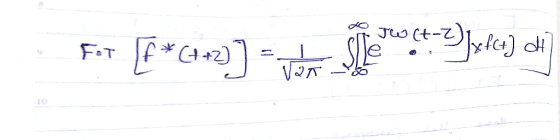 F.T [f*(t+z)] = 1/√2π ∫∫ -∞ ∞ [e^jω(t-z) . . ] x f(t) dt]
10